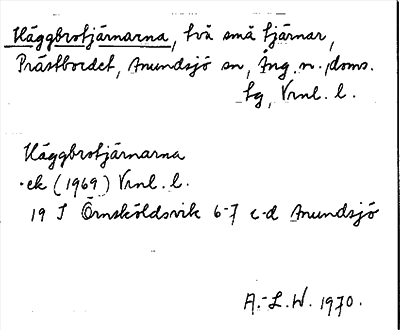 Häggbrotjärnarna, två små tjärnar,
Prästbordet, Anundsjö sn, Ång. n. doms.
tg, Vrnl. l.
Häggbrotjärnarna
-ek (1969) Vrnl. l.
19 I Örnsköldsvik 6-7 c-d Anundsjö
A.-L.W. 1970.